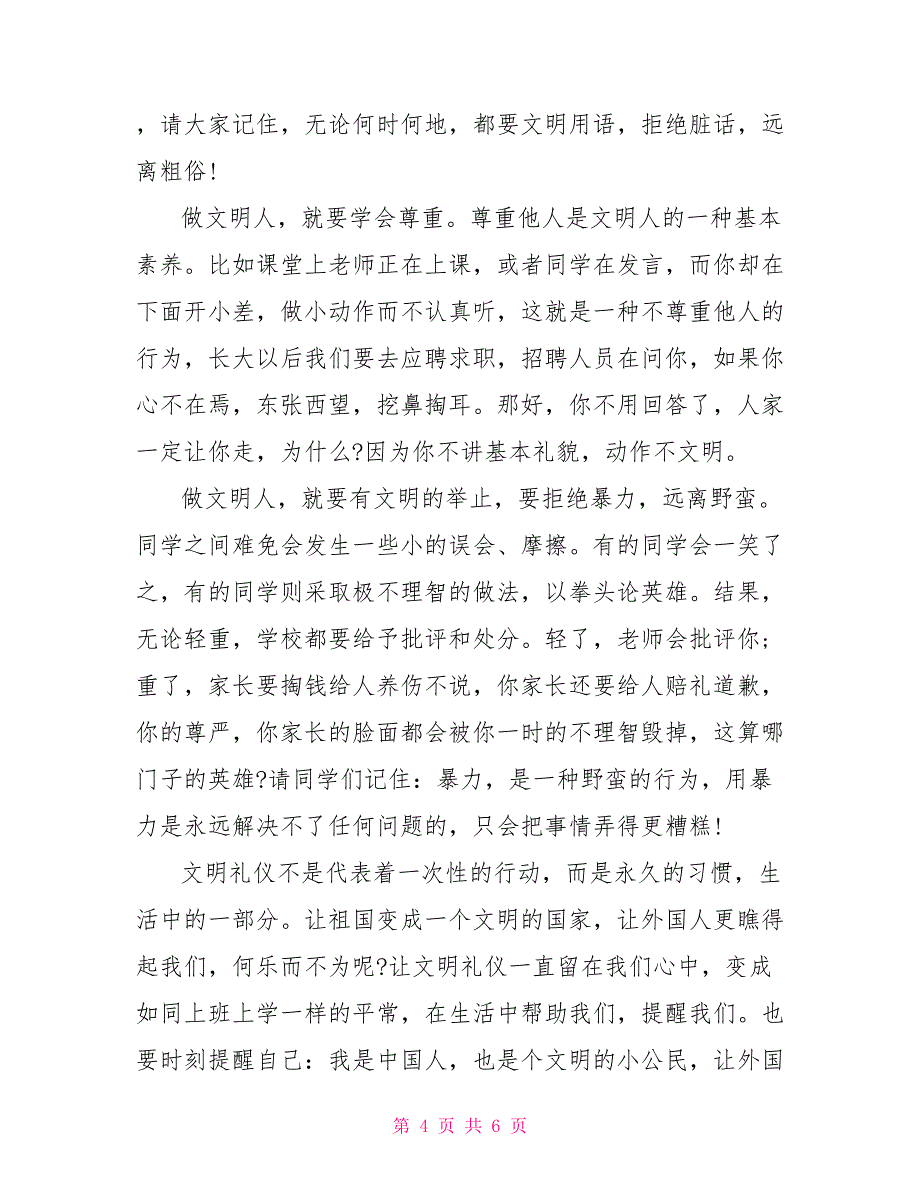 ，请大家记住，无论何时何地，都要文明用语，拒绝脏话，远
离粗俗!
做文明人，就要学会尊重。尊重他人是文明人的一种基本
素养。比如课堂上老师正在上课，或者同学在发言，而你却在
下面开小差，做小动作而不认真听，这就是一种不尊重他人的
行为，长大以后我们要去应聘求职，招聘人员在问你，如果你
心不在焉，东张西望，挖鼻掏耳。那好，你不用回答了，人家
一定让你走，为什么?因为你不讲基本礼貌，动作不文明。
做文明人，就要有文明的举止，要拒绝暴力，远离野蛮。
同学之间难免会发生一些小的误会、摩擦。有的同学会一笑了
之，有的同学则采取极不理智的做法，以拳头论英雄。结果，
无论轻重，学校都要给予批评和处分。轻了，老师会批评你;
重了，家长要掏钱给人养伤不说，你家长还要给人赔礼道歉，
你的尊严，你家长的脸面都会被你一时的不理智毁掉，这算哪
门子的英雄?请同学们记住：暴力，是一种野蛮的行为，用暴
力是永远解决不了任何问题的，只会把事情弄得更糟糕!
文明礼仪不是代表着一次性的行动，而是永久的习惯，生
活中的一部分。让祖国变成一个文明的国家，让外国人更瞧得
起我们，何乐而不为呢?让文明礼仪一直留在我们心中，变成
如同上班上学一样的平常，在生活中帮助我们，提醒我们。也
要时刻提醒自己：我是中国人，也是个文明的小公民，让外国
第 4 页 共 6 页